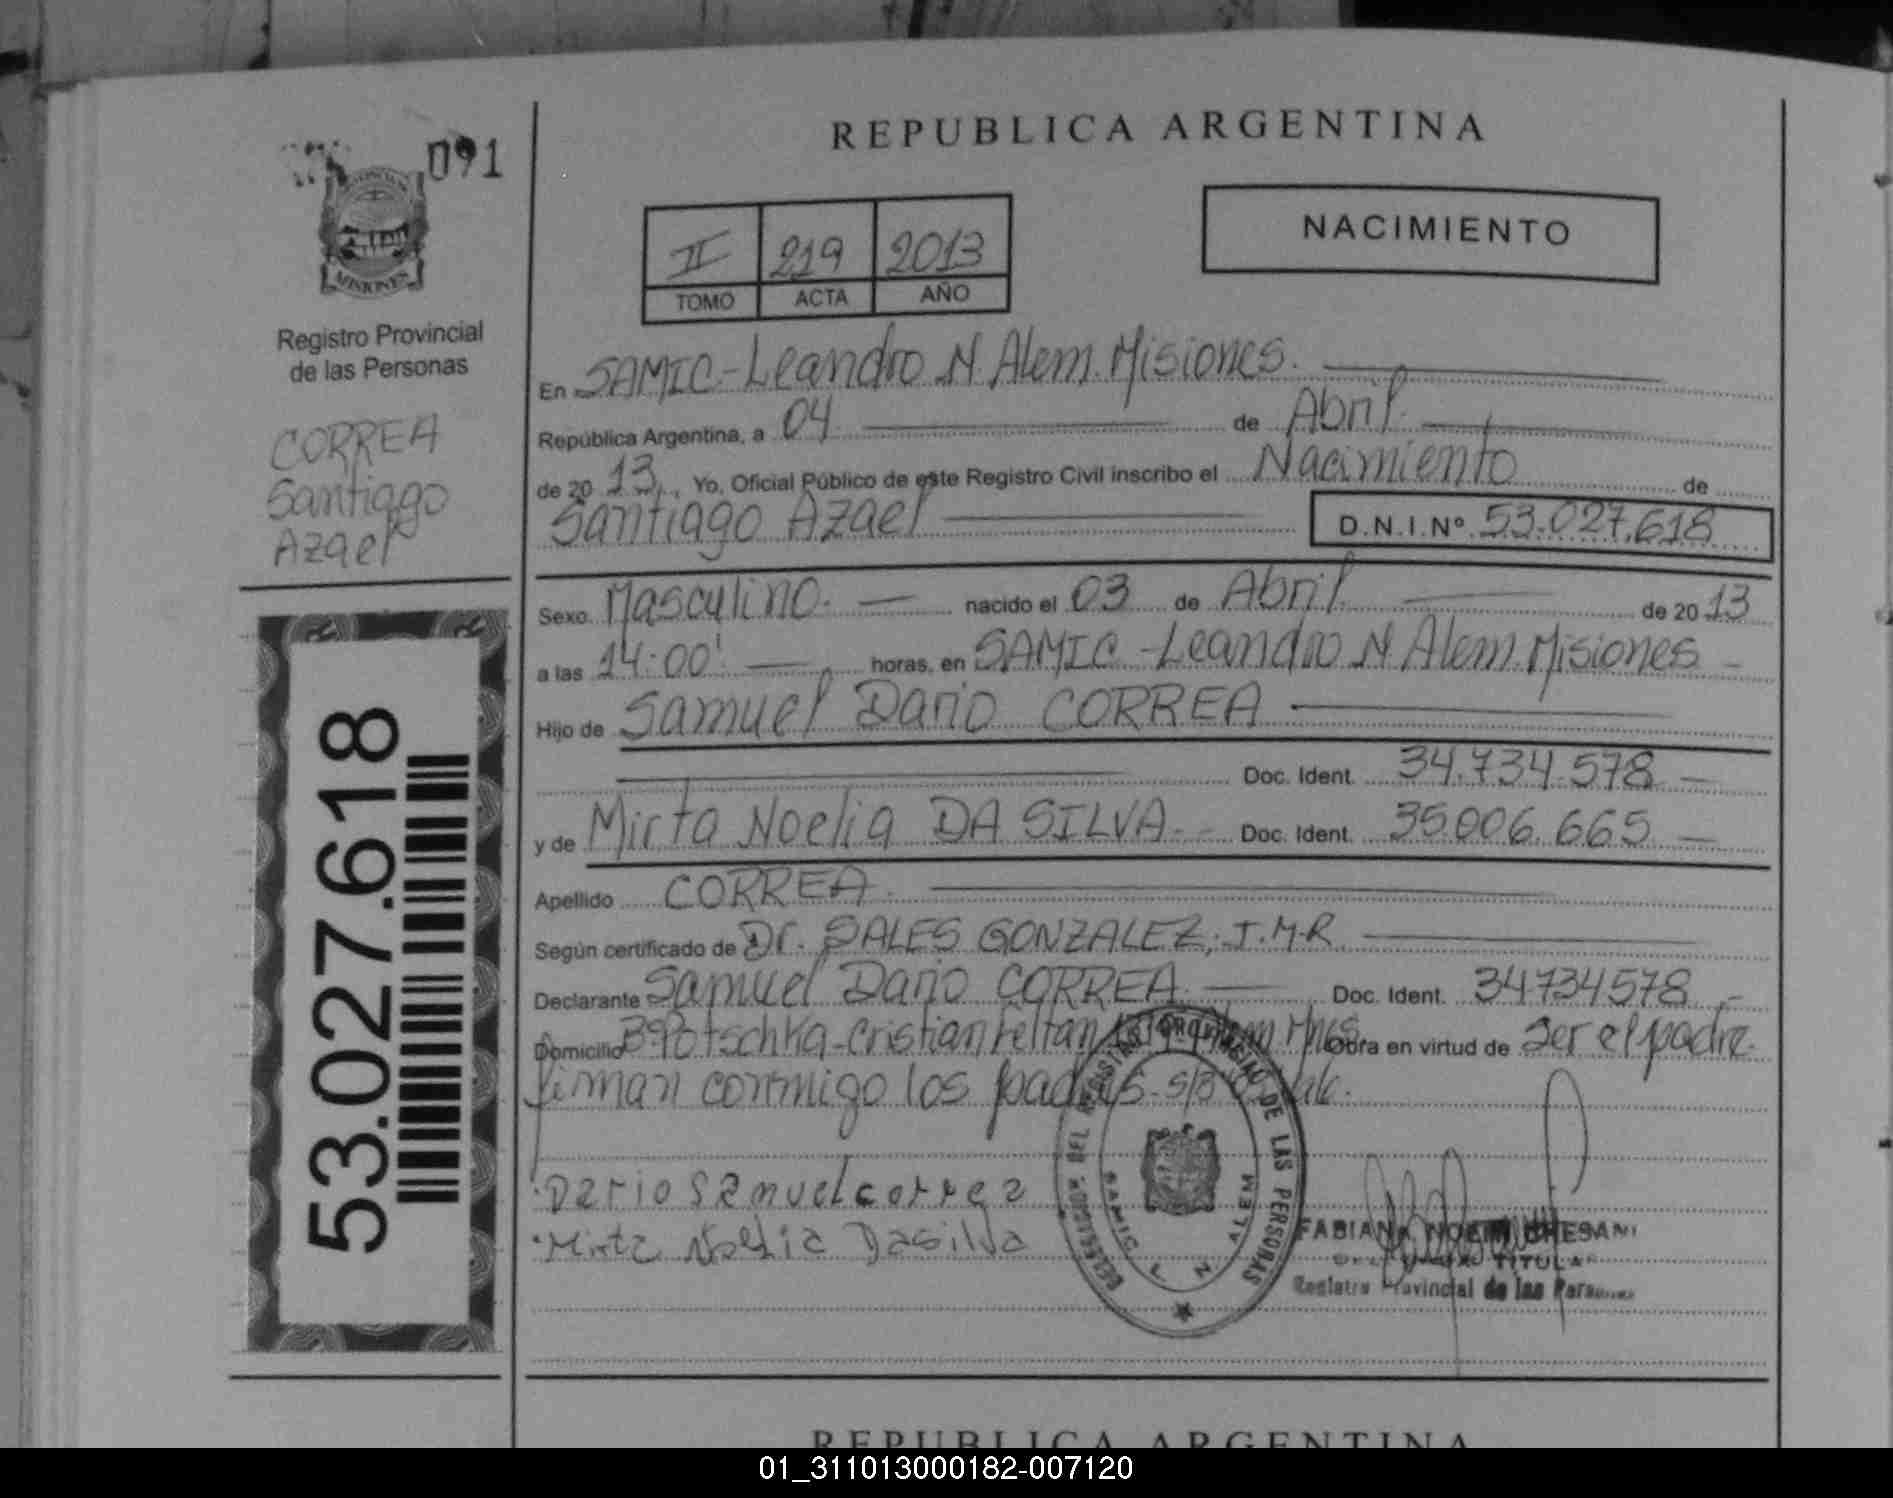 091
MISIONES
Registro Provincial
de las Personas
CORREA
Santiago
Azael
53.027.618
REPUBLICA ARGENTINA
NACIMIENTO
II 219 2013
TOMO ACTA AÑO
En SAMIC-Leandro N. Alem. Misiones.
República Argentina, a 04 de Abril
de 20 13, Yo, Oficial Público de este Registro Civil inscribo el Nacimiento de
Santiago Azael D.N.I.Nº 53.027.618
Sexo Masculino. nacido el 03 de Abril de 20 13
a las 14:00' horas, en SAMIC-Leandro N Alem. Misiones
Hijo de Samuel Dario CORREA
Doc. Ident. 34.734.578
y de Mirta Noelia DA SILVA Doc. Ident. 35.006.665
Apellido CORREA
Según certificado de Dr. SALES GONZALEZ, J.M.R
Declarante Samuel Dario CORREA Doc. Ident. 34734578
Domicilio Bº Potschka-Cristian Obra en virtud de ser el padre.
firman conmigo los padres
Dario Samuel correa
Mirta Noelia Dasilva
DEL REGISTRO PROVINCIAL DE LAS PERSONAS
SAMIC L N ALEM
FABIANA NOEMI
TITULAR
Registro Provincial de las Personas
REPUBLICA ARGENTINA
01_311013000182-007120